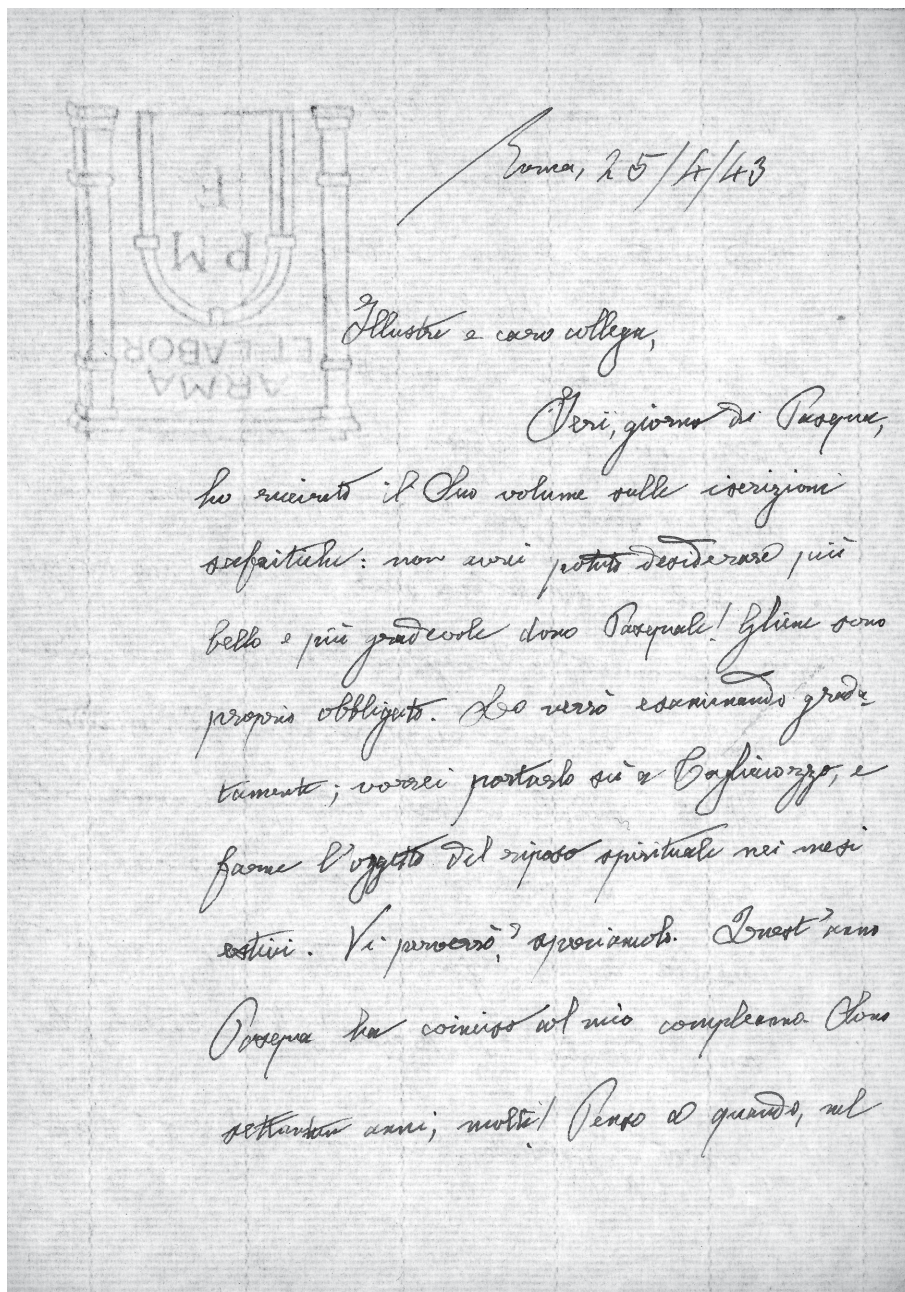 Roma, 25/4/43
Illustre e caro collega,
Ieri, giorno di Pasqua,
ho ricevuto il Suo volume sulle iscrizioni
safaitiche: non avrei potuto desiderare più
bello e più gradevole dono Pasquale! Gliene sono
proprio obbligato. Lo verrò esaminando grada-
tamente; vorrei portarlo sù a Tagliacozzo, e
farne l'oggetto del riposo spirituale nei mesi
estivi. Vi perverrò? speriamolo. Quest'anno
Pasqua ha coinciso col mio compleanno. Sono
settantun anni, molti! Penso a quando, nel
F
P M
ET LABOR
ARMA